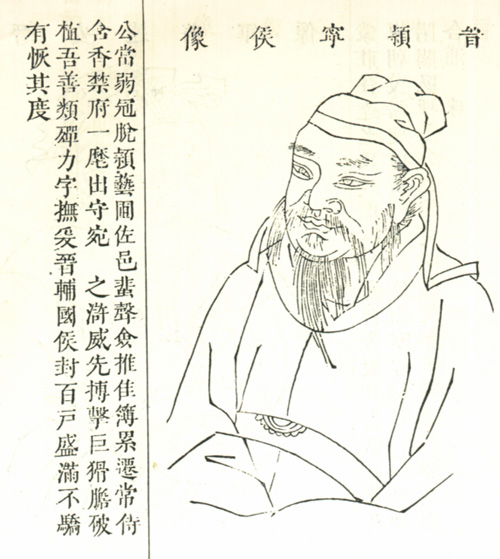 晋頴寧侯像
公當弱冠脫頴藝圃佐邑蜚聲僉推佳簿累遷常侍
含香禁府一麾出守宛 之滸威先搏擊巨猾膽破
植吾善類殫力字撫爰晉輔國侯封百戶盛滿不驕
有恢其度